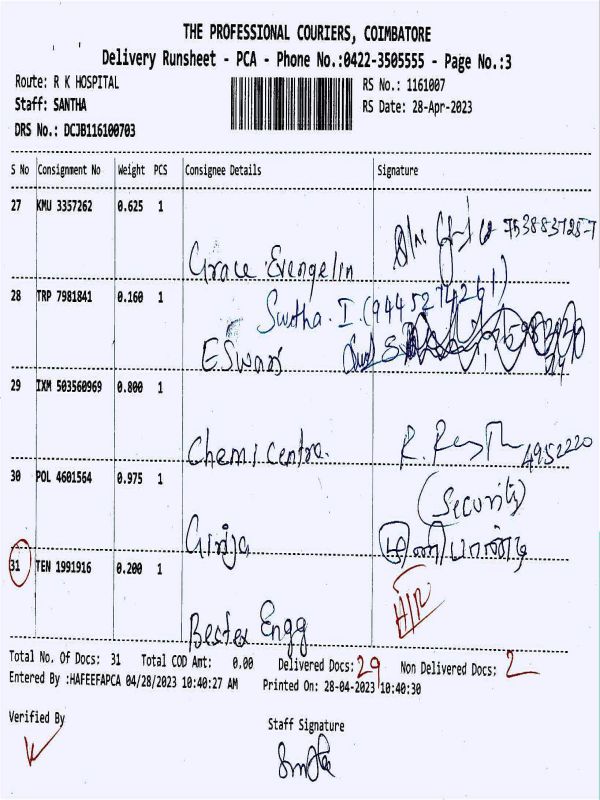 THE PROFESSIONAL COURIERS, COIMBATORE
Delivery Runsheet - PCA - Phone No.:0422-3505555 - Page No.:3
Route: R K HOSPITAL
RS No.: 1161007
Staff: SANTHA
RS Date: 28-Apr-2023
DRS No.: DCJB116100703
S No Consignment No Weight PCS Consignee Details Signature
27 KMU 3357262 0.625 1
Grace Evengelin
28 TRP 7981841 0.160 1
Swetha. I. (9445274261)
ESwari
29 IXM 503560969 0.800 1
Chemicentra. 4952220
30 POL 4601564 0.975 1
(Security)
Girija மணிபாண்டி
31 TEN 1991916 0.200 1
Bestex Engg
Total No. Of Docs: 31 Total COD Amt: 0.00 Delivered Docs: 29 Non Delivered Docs: 2
Entered By :HAFEEFAPCA 04/28/2023 10:40:27 AM Printed On: 28-04-2023 10:40:30
Verified By
Staff Signature